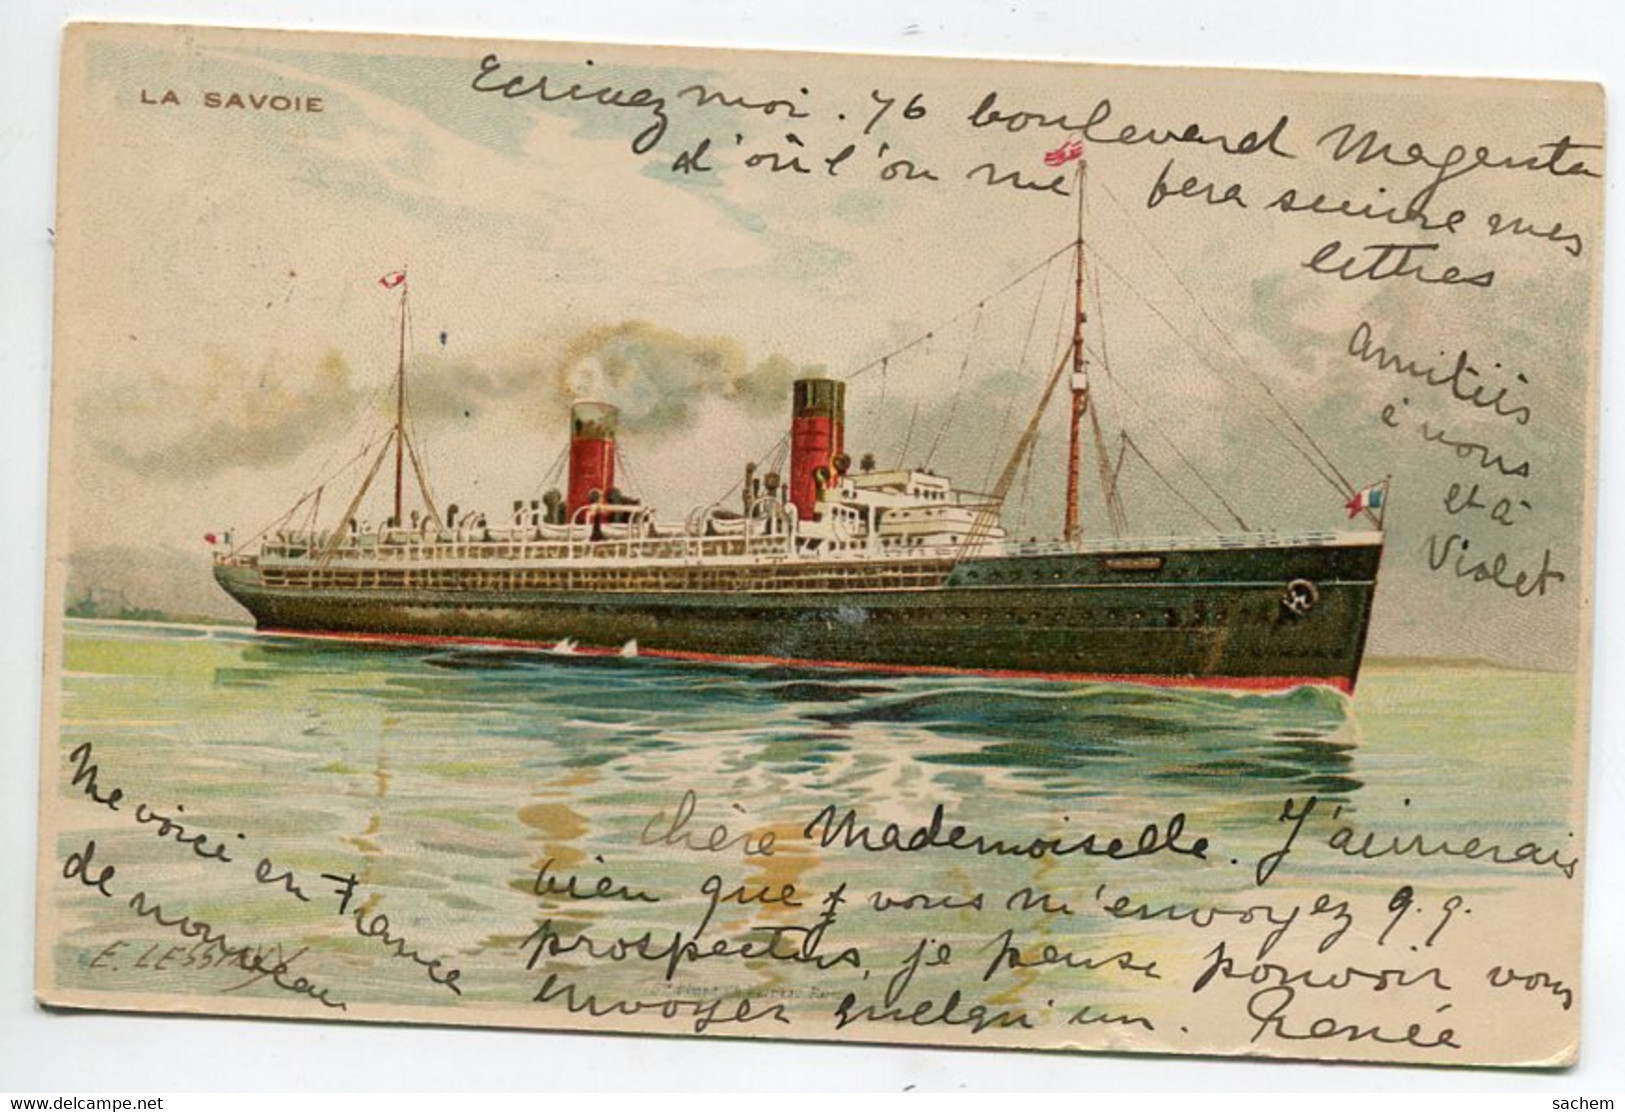 LA SAVOIE
Ecrivez moi. 76 boulevard Magenta
d'où l'on me fera suivre mes
lettres
Amitiés
à vous
et à
Violet
Me voici en France
de nouveau
chère Mademoiselle. J'aimerais
bien que vous m'envoyez q.q.
prospectus, je pense pouvoir vous
envoyer quelqu'un. Renée
E. LESSIEUX
delcampe.net
sachem